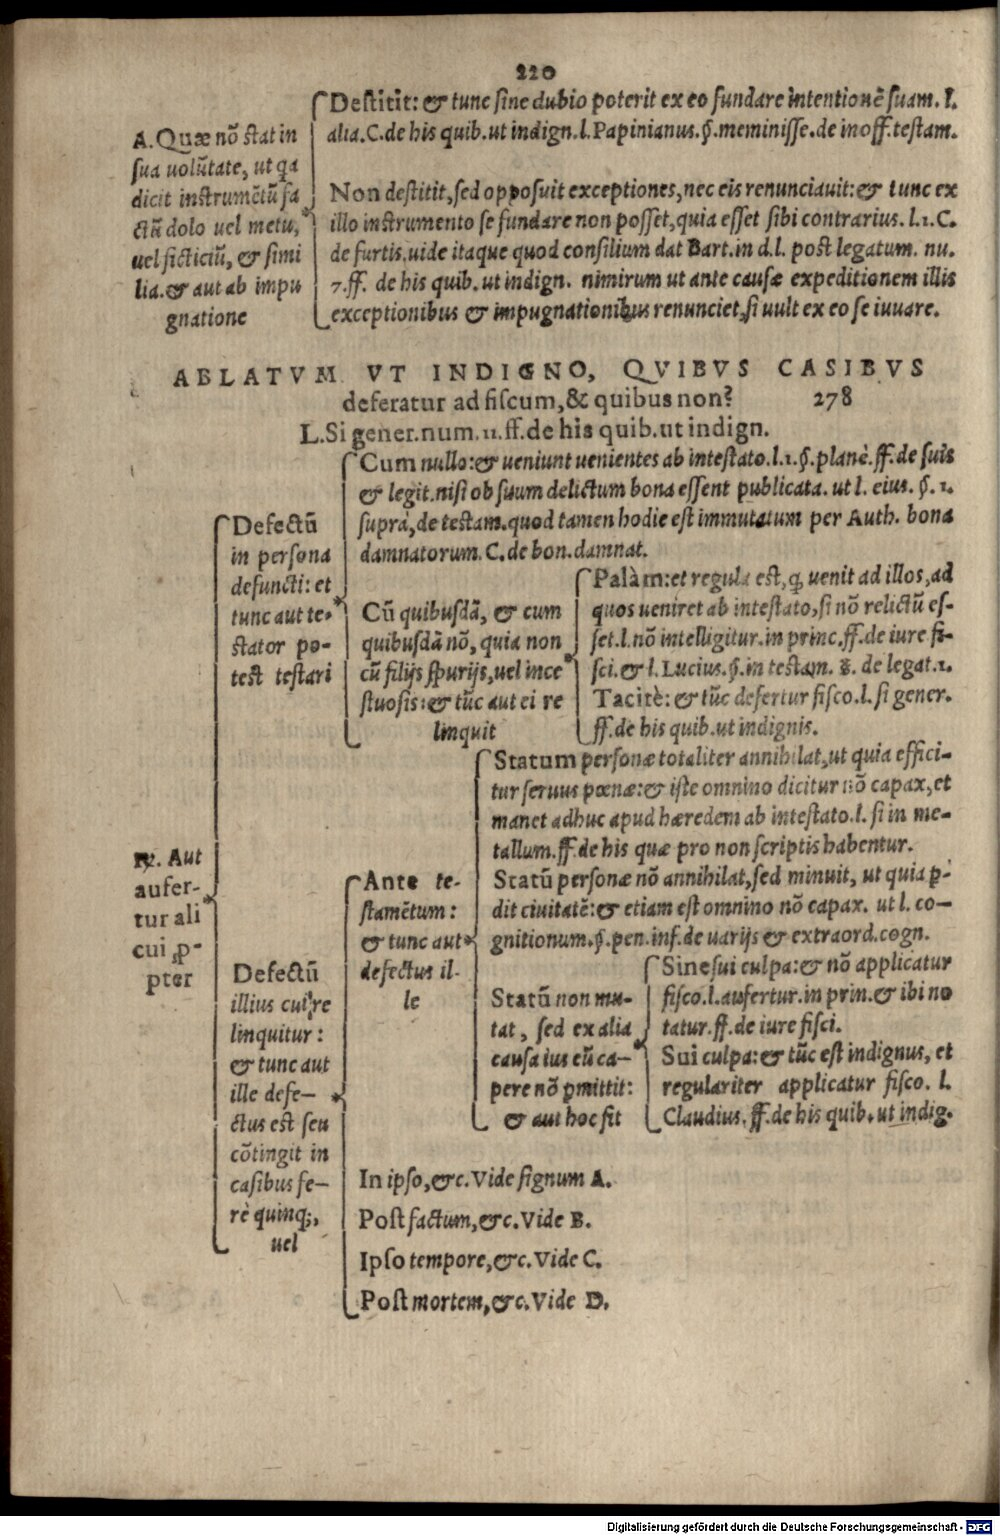 220
A. Quæ nõ stat in
sua volũtate, ut qa
dicit instrumẽtũ fa
ctũ dolo uel metu,
uel ficticiũ, & simi
lia. & aut ab impu
gnatione
Destitit: & tunc sine dubio poterit ex eo fundare intentionẽ suam. l.
alia. C. de his quib. ut indign. l. Papinianus. §. meminisse. de inoff. testam.
Non destitit, sed opposuit exceptiones, nec eis renunciauit: & tunc ex
illo instrumento se fundare non posset, quia esset sibi contrarius. l. 1. C.
de furtis. uide itaque quod consilium dat Bart. in d. l. post legatum. nu.
7. ff. de his quib. ut indign. nimirum ut ante causæ expeditionem illis
exceptionibus & impugnationibus renunciet, si uult ex eo se iuuare.
ABLATVM VT INDIGNO, QVIBVS CASIBVS
deferatur ad fiscum, & quibus non? 278
L. Si gener. num. 11. ff. de his quib. ut indign.
℞. Aut
aufer-
tur ali
cui ꝓ-
pter
Defectũ
in persona
defuncti: et
tunc aut te-
stator po-
test testari
Cum nullo: & ueniunt uenientes ab intestato. l. 1. §. planè. ff. de suis
& legit. nisi ob suum delictum bona essent publicata. ut l. eius. §. 1.
suprà, de testam. quod tamen hodie est immutatum per Auth. bona
damnatorum. C. de bon. damnat.
Cũ quibusdã, & cum
quibusdã nõ, quia non
cũ filijs spurijs, uel ince
stuosis: & tũc aut ei re
linquit
Palàm: et regula est, ꝙ uenit ad illos, ad
quos ueniret ab intestato, si nõ relictũ es-
set. l. nõ intelligitur. in princ. ff. de iure fi-
sci. & l. Lucius. §. in testam. ff. de legat. 1.
Tacitè: & tũc defertur fisco. l. si gener.
ff. de his quib. ut indignis.
Defectũ
illius cui re
linquitur:
& tunc aut
ille defe-
ctus est seu
cõtingit in
casibus fe-
rè quinq;,
uel
Ante te-
stamẽtum:
& tunc aut
defectus il-
le
Statum personæ totaliter annihilat, ut quia effici-
tur seruus pœnæ: & iste omnino dicitur nõ capax, et
manet adhuc apud hæredem ab intestato. l. si in me-
tallum. ff. de his quæ pro non scriptis habentur.
Statũ personæ nõ annihilat, sed minuit, ut quia ꝑ-
dit ciuitatẽ: & etiam est omnino nõ capax. ut l. co-
gnitionum. §. pen. inf. de uarijs & extraord. cogn.
Statũ non mu-
tat, sed ex alia
causa ius eũ ca-
pere nõ ꝑmittit:
& aut hoc fit
Sine sui culpa: & nõ applicatur
fisco. l. aufertur. in prin. & ibi no
tatur. ff. de iure fisci.
Sui culpa: & tũc est indignus, et
regulariter applicatur fisco. l.
Claudius. ff. de his quib. ut indig.
In ipso, &c. Vide signum A.
Post factum, &c. Vide B.
Ipso tempore, &c. Vide C.
Post mortem, &c. Vide D.
Digitalisierung gefördert durch die Deutsche Forschungsgemeinschaft - DFG